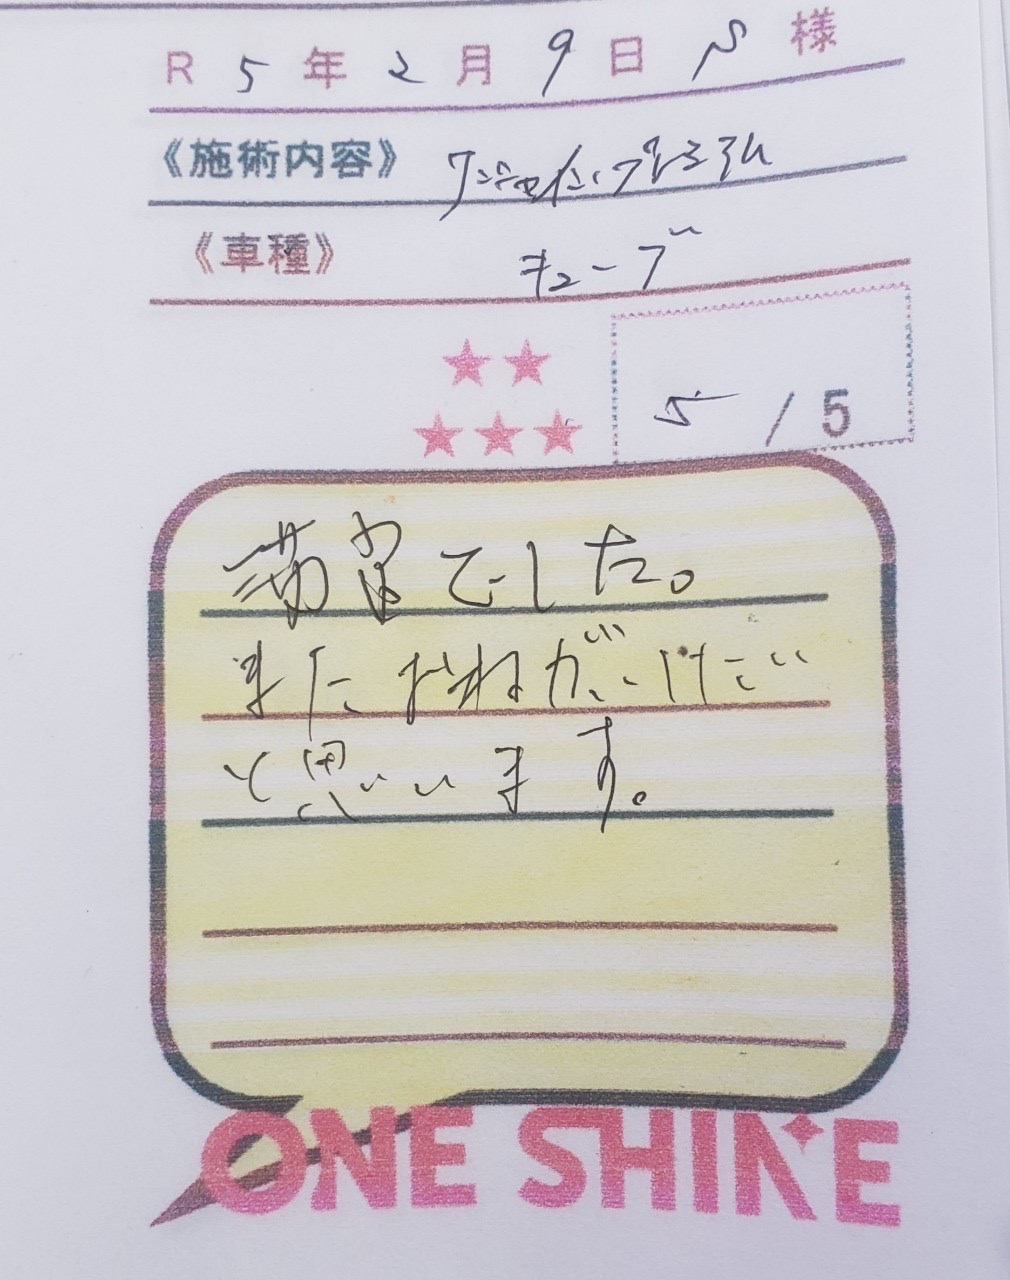 R 5年2月9日 S様
《施術内容》 ワンシャインプレミアム
《車種》 キューブ
5/5
満足でした。
またおねがいしたい
と思います。
ONE SHINE